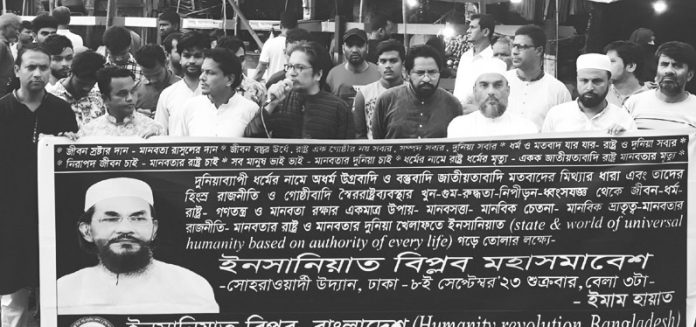 * জীবন স্রষ্টার দান - মানবতা রাসুলের দান * জীবন বস্তুর উর্ধে, রাষ্ট্র এক গোষ্ঠীর নয় সবার, সম্পদ সবার, দুনিয়া সবার * ধর্ম ও মতবাদ যার যার- রাষ্ট্র ও দুনিয়া সবার
* নিরাপদ জীবন চাই - মানবতার রাষ্ট্র চাই * সব মানুষ ভাই ভাই - মানবতার দুনিয়া চাই * ধর্মের নামে রাষ্ট্র ধর্মের মৃত্যু - একক জাতীয়তাবাদি রাষ্ট্র মানবতার মৃত্যু *
দুনিয়াব্যাপী ধর্মের নামে অধর্ম উগ্রবাদি ও বস্তুবাদি জাতীয়তাবাদি মতবাদের মিথ্যার ধারা এবং তাদের
হিংস্র রাজনীতি ও গোষ্ঠীবাদি স্বৈররাষ্ট্রব্যবস্থার খুন-গুম-রুদ্ধতা-নিপীড়ন-ধ্বংসযজ্ঞ থেকে জীবন-ধর্ম-
রাষ্ট্র- গণতন্ত্র ও মানবতা রক্ষার একমাত্র উপায়- মানবসত্তা- মানবিক চেতনা- মানবিক ভ্রাতৃত্ব-মানবতার
রাজনীতি- মানবতার রাষ্ট্র ও মানবতার দুনিয়া খেলাফতে ইনসানিয়াত (state & world of universal
humanity based on authority of every life) গড়ে তোলার লক্ষ্যে-
ইনসানিয়াত বিপ্লব মহাসমাবেশ
-সোহরাওয়ার্দী উদ্যান, ঢাকা -৮ই সেপ্টেম্বর'২৩ শুক্রবার, বেলা ৩টা-
- ইমাম হায়াত
ইনসানিয়াত বিপ্লব, বাংলাদেশ (Humanity revolution, Bangladesh)